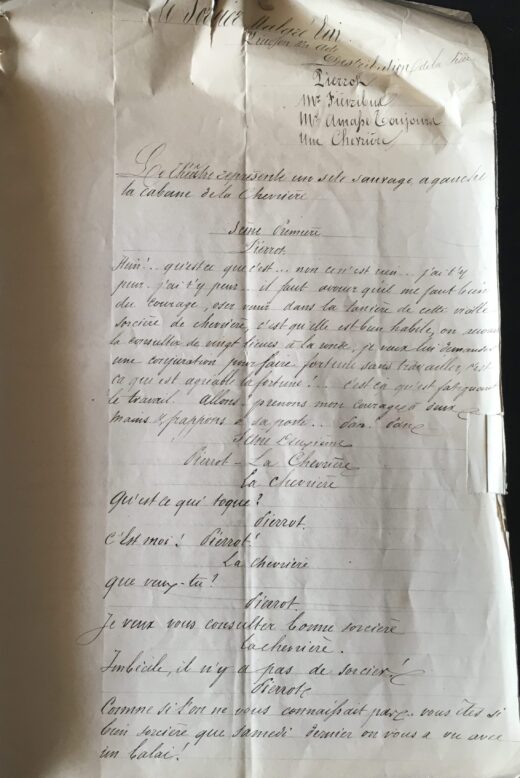 le Sorcier Malgré lui
Distribution de la
Pierrot
Mr
Mr Amasse Toujours
Une Chevrière
Le théâtre représente un site sauvage, a gauche
la cabane de la Chevrière
Scène Première
Pierrot
Hein!.. qu'est ce que c'est... non ce n'est rien... j'ai t'y
peur.. j'ai t'y peur... il faut avouer qu'il me faut
du courage, oser venir dans la tanière de cette vieille
sorcière de chevrière, c'est qu'elle est bien habile, on
la consulter de vingt lieues à la ronde, je veux lui demander
une conjuration pour faire fortune sans travailler, c'est
ça qui est agréable la fortune!... c'est ça qu'est fatiguant
le travail. Allons! prenons mon courage à deux
mains & frappons à sa porte... Pan! Pan!
Scène Deuxième
Pierrot - La Chevrière
La chevrière
Qu'est ce qui toque?
Pierrot.
C'Est moi! Pierrot!
La chevrière
que veux-tu?
Pierrot
Je veux vous consulter bonne sorcière
La chevrière.
Imbécile, il n'y a pas de sorcier!
Pierrot
Comme si l'on ne vous connaissait pas vous êtes si
bien sorcière que samedi dernier on vous a vu avec
un balai!